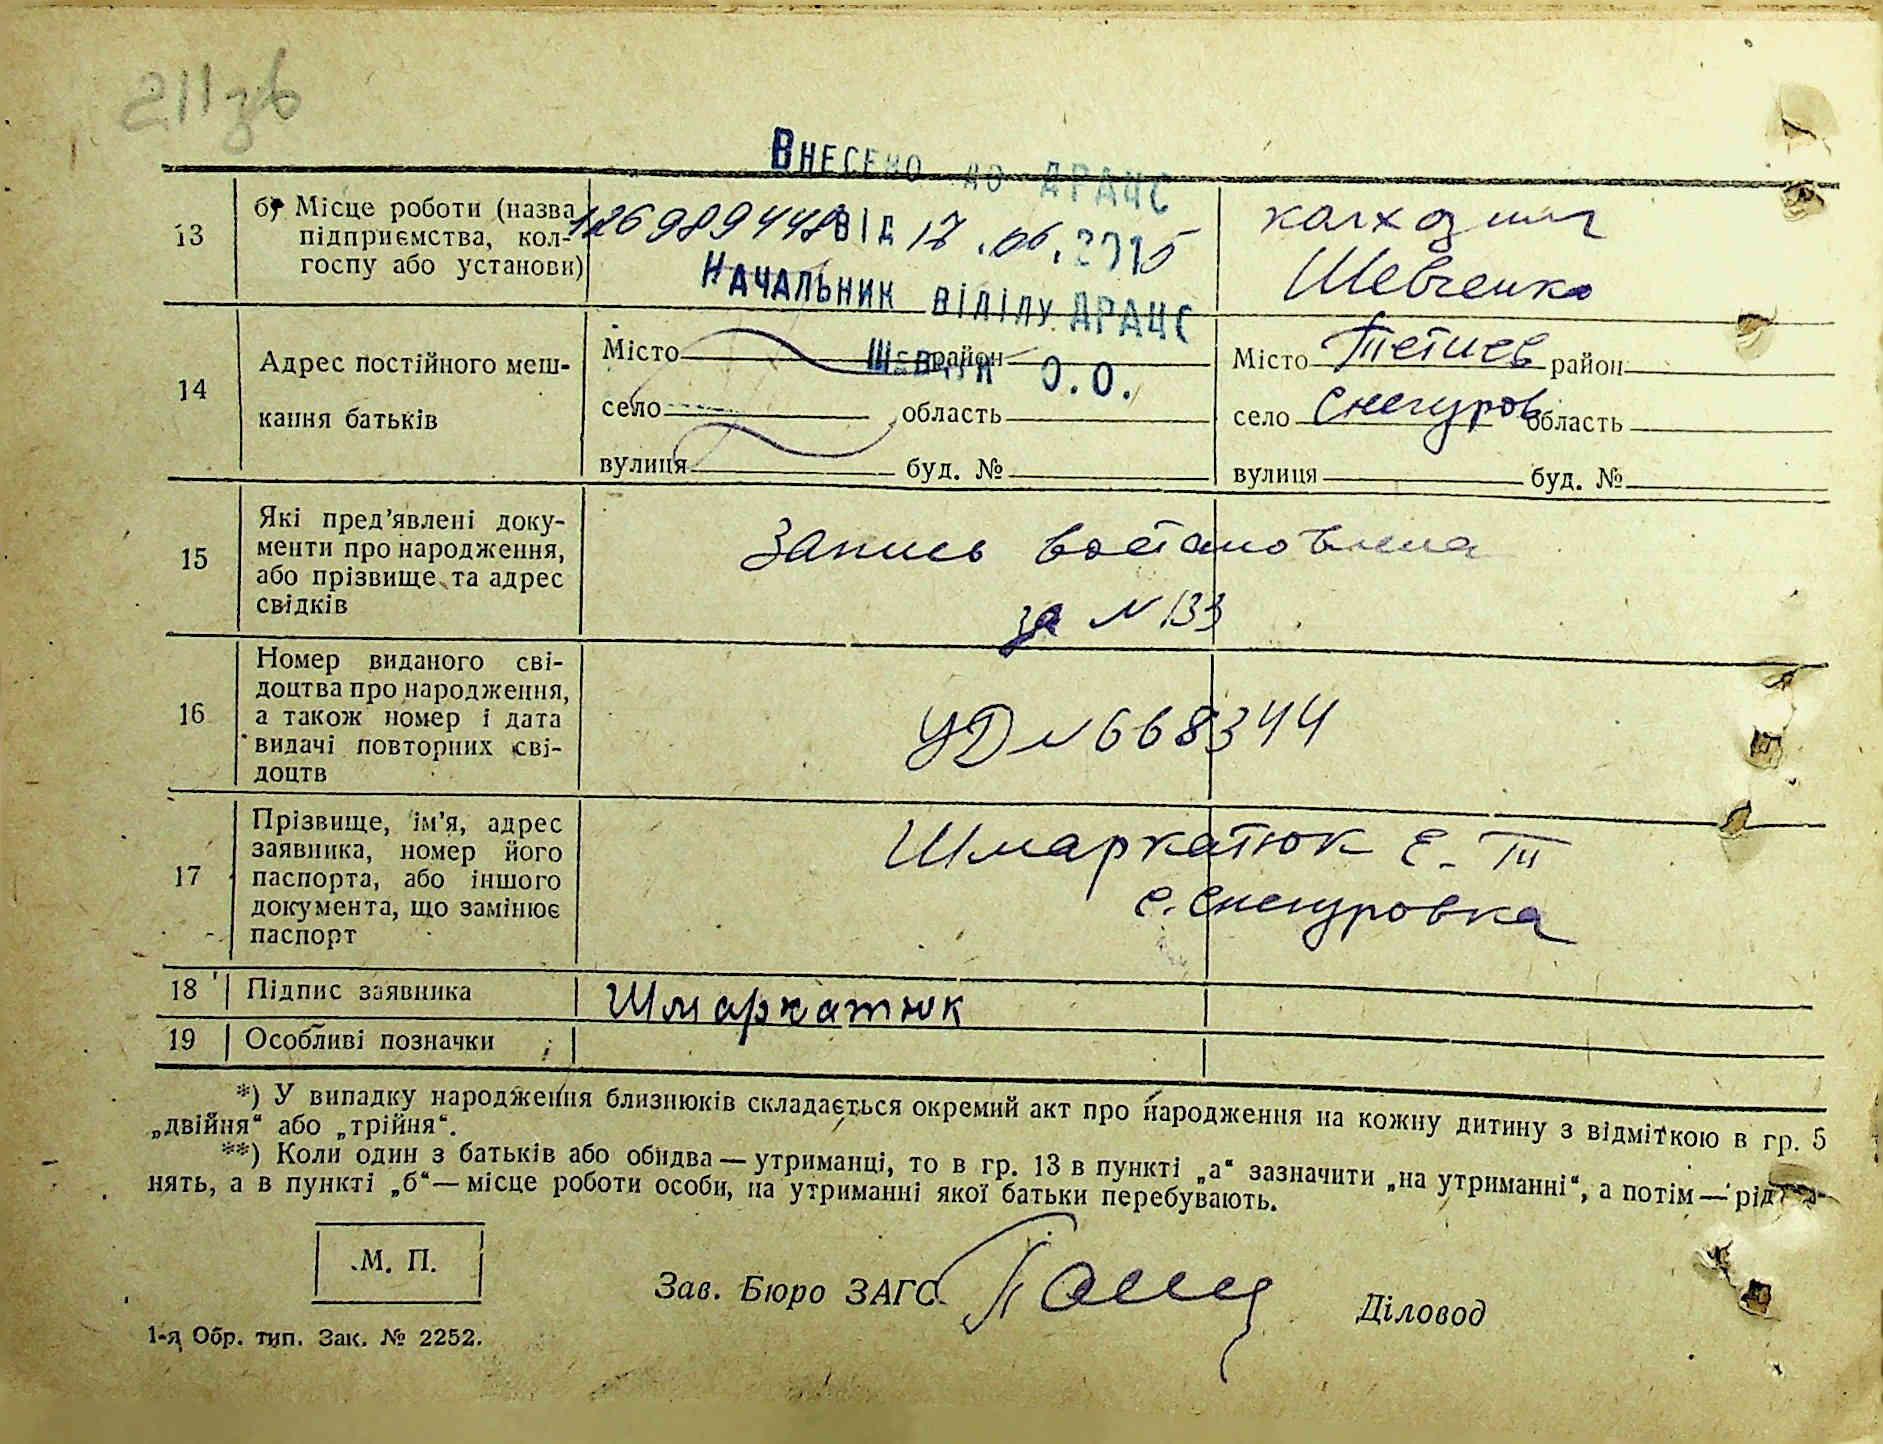 211зв
Внесено до ДРАЦС
13
б) Місце роботи (назва підприємства, колгоспу або установи)
від 17.06.2015
Начальник відділу ДРАЦС
О.О.
Шевченко
14
Адрес постійного мешкання батьків
Місто район
село область
вулиця буд. №
Місто Тетиев район
село Снегуров область
вулиця буд. №
15
Які пред'явлені документи про народження, або прізвище та адрес свідків
Запись востановлена
за N 133
16
Номер виданого свідоцтва про народження, а також номер і дата видачі повторних свідоцтв
УД N 668344
17
Прізвище, ім'я, адрес заявника, номер його паспорта, або іншого документа, що замінює паспорт
Шмаркатюк Е. Т
с. Снегуровка
18 Підпис заявника
Шмаркатюк
19 Особливі позначки
*) У випадку народження близнюків складається окремий акт про народження на кожну дитину з відміткою в гр. 5
„двійня“ або „трійня“.
**) Коли один з батьків або обидва — утриманці, то в гр. 13 в пункті „а“ зазначити „на утриманні“, а потім — рід
нять, а в пункті „б“ — місце роботи особи, на утриманні якої батьки перебувають.
М. П.
Зав. Бюро ЗАГС
Діловод
1-я Обр. тип. Зак. № 2252.